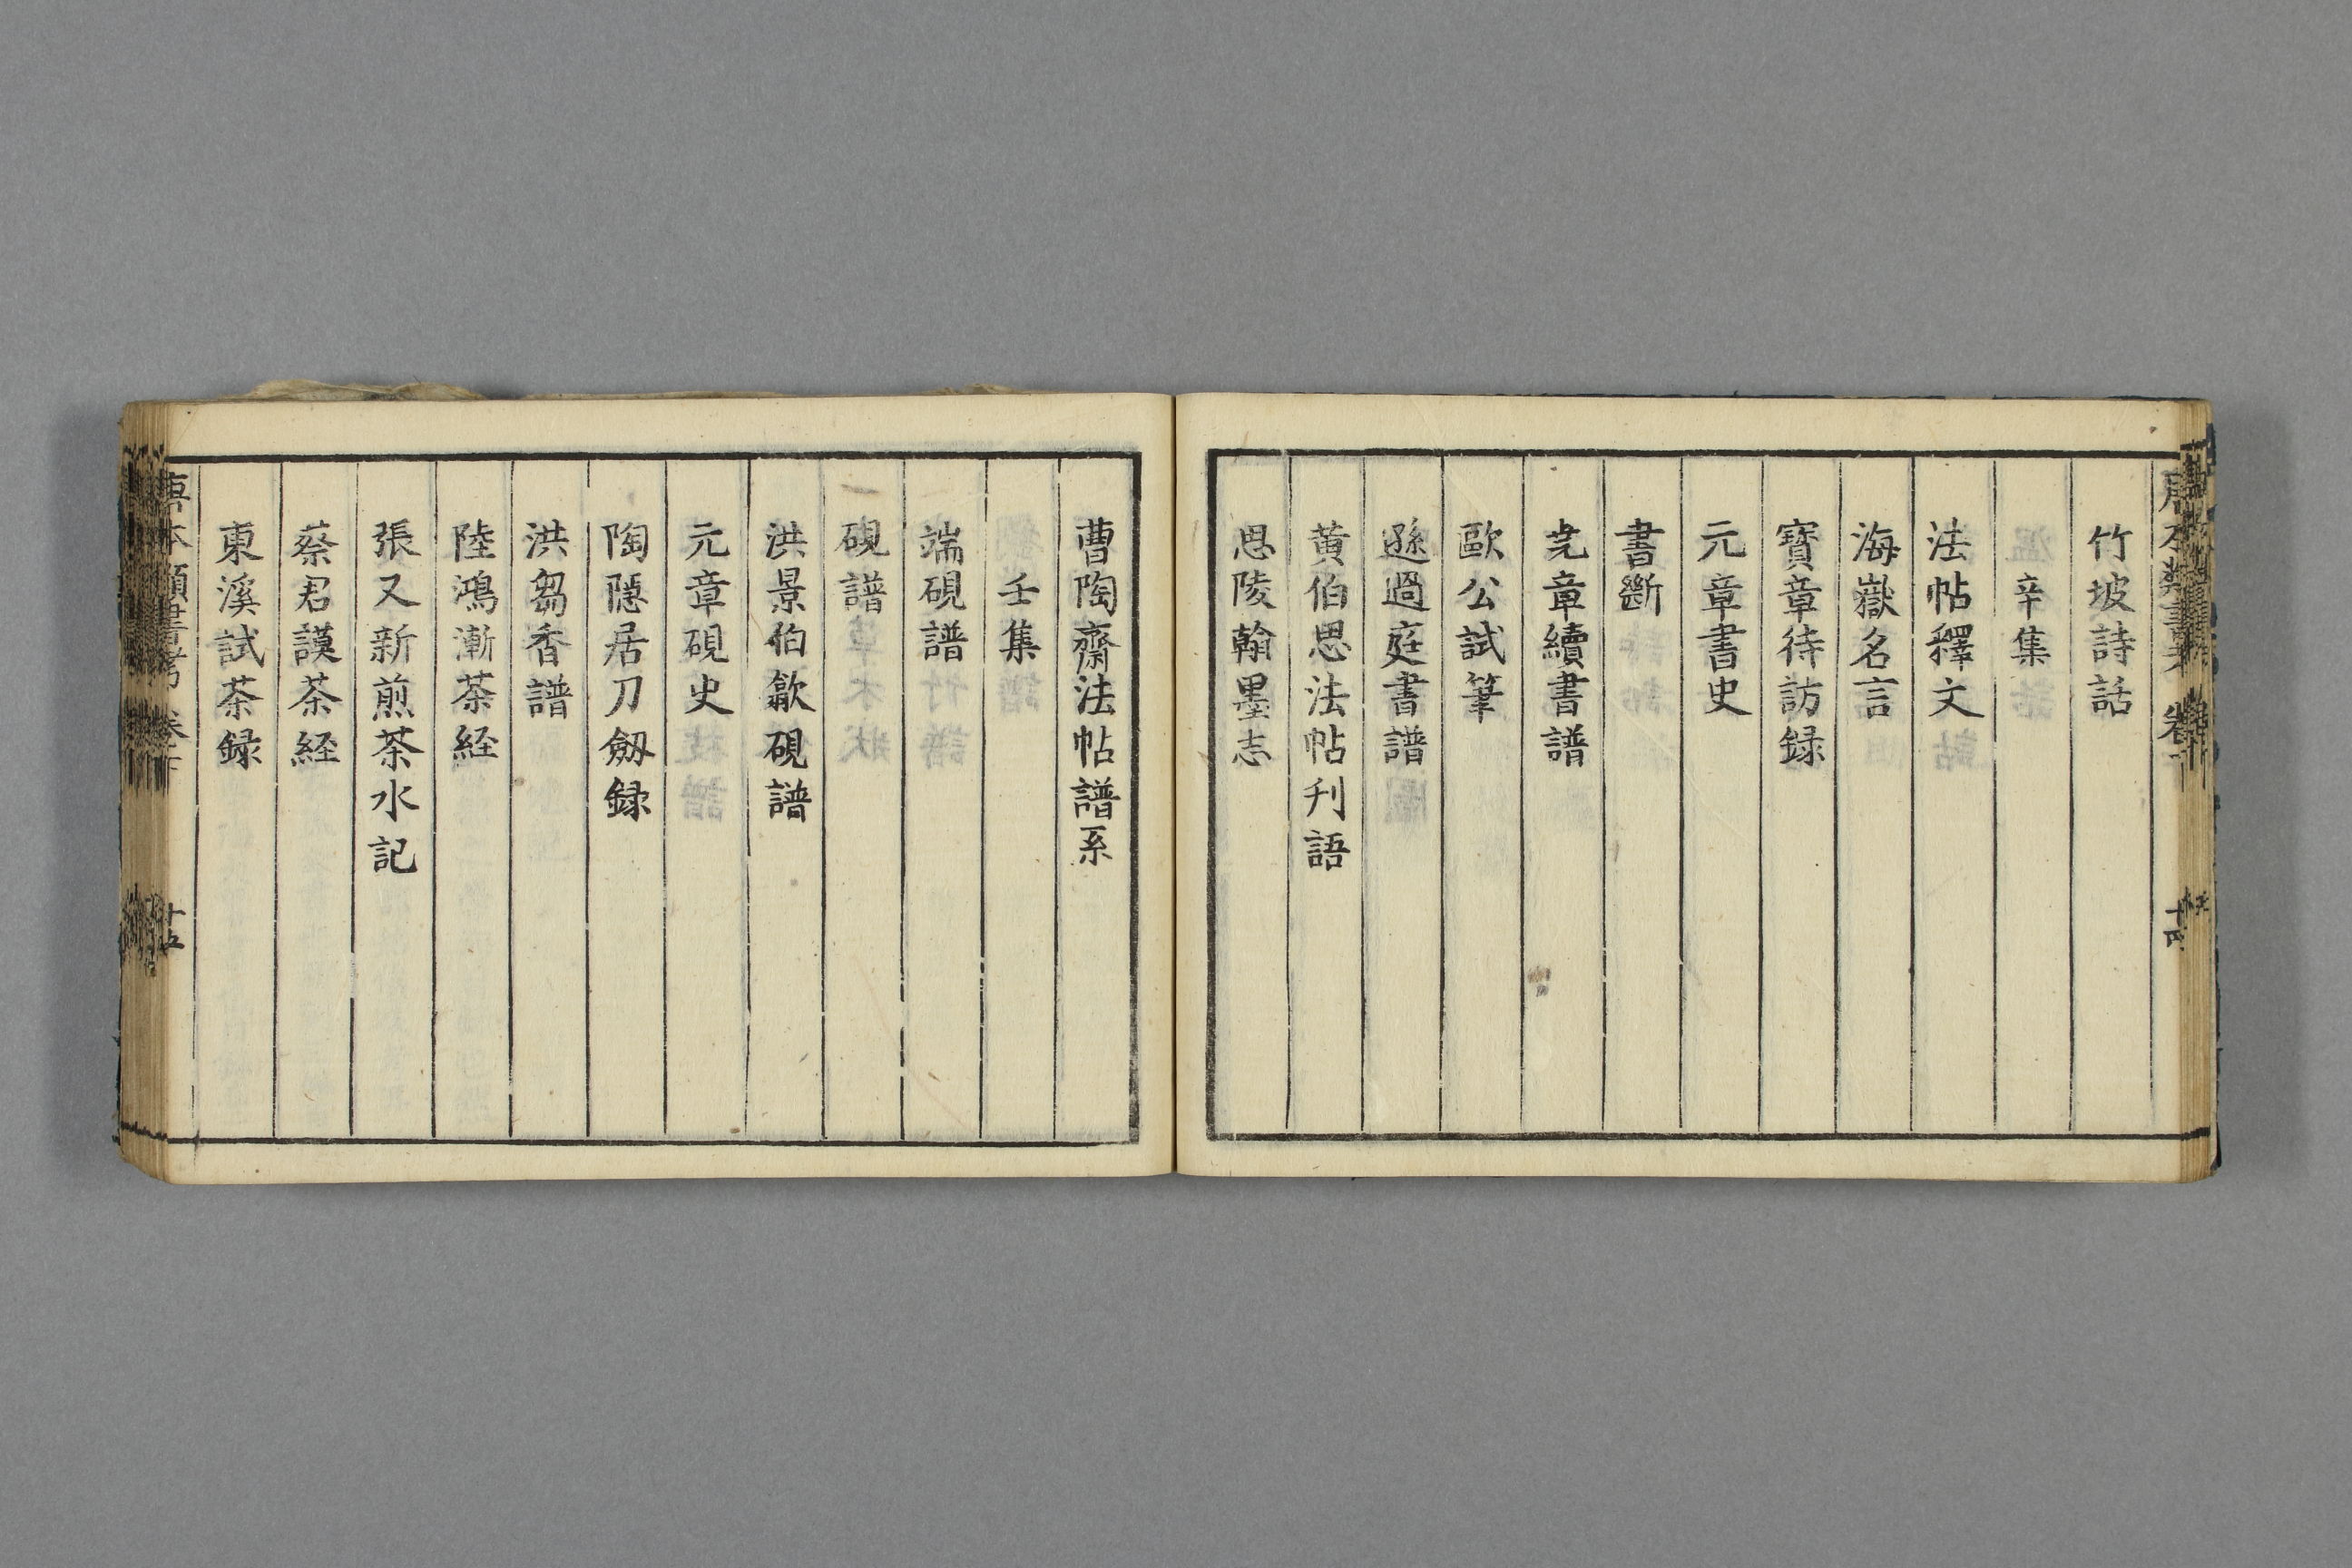 竹坡詩話
辛集
法帖釋文
海嶽名言
寶章待訪録
元章書史
書斷
尭章續書譜
歐公試筆
遜過庭書譜
黄伯思法帖刋語
思陵翰墨志
曹陶齋法帖譜系
壬集
端硯譜
硯譜
洪景伯歙硯譜
元章硯史
陶隠居刀劔録
洪芻香譜
陸鴻漸茶経
張又新煎茶水記
蔡君謨茶経
東溪試茶録
十五